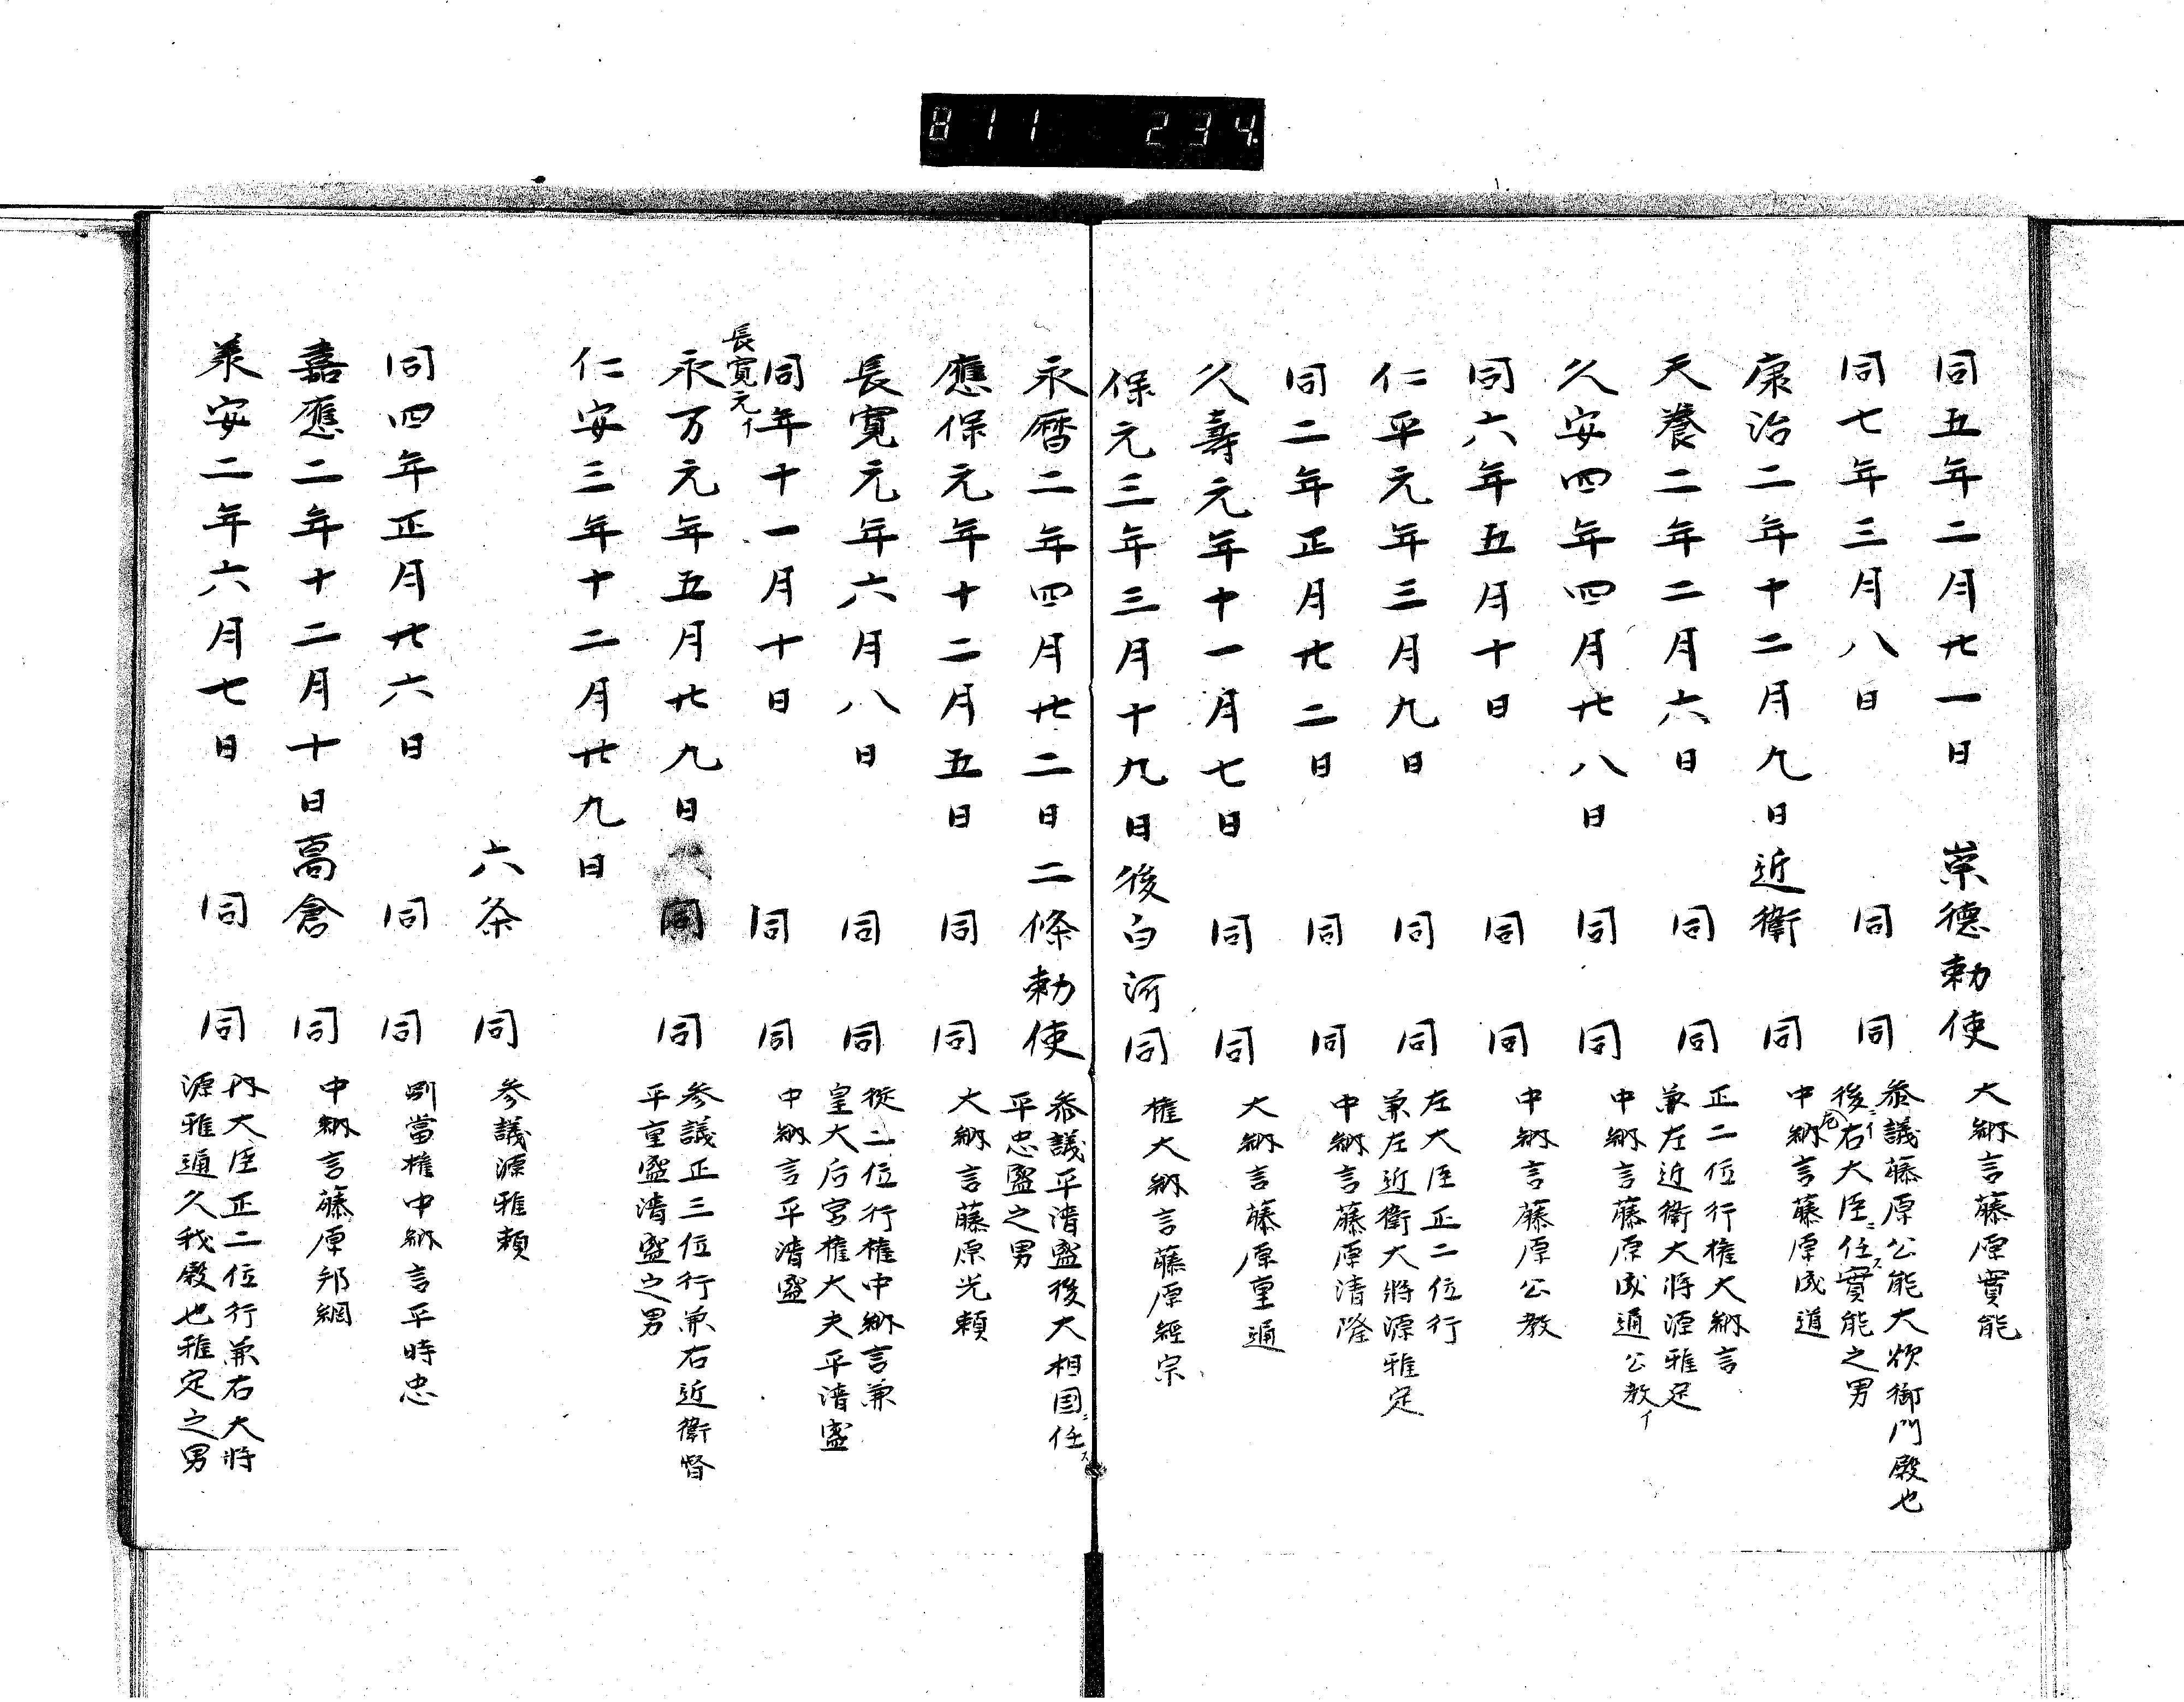 811 234
同五年二月廿一日 崇德勅使 大納言藤原實能
同七年三月八日 同 同 参議藤原公能大炊御門殿也
後右大臣ニ任ス實能之男
康治二年十二月九日近衛 同 中納言藤原成道
天養二年二月六日 同 同 正二位行権大納言
兼左近衛大将源雅定
久安四年四月廿八日 同 同 中納言藤原成通 公教イ
同六年五月十日 同 同 中納言藤原公教
仁平元年三月九日 同 同 左大臣正二位行
兼左近衛大将源雅定
同二年正月廿二日 同 同 中納言藤原清隆
久壽元年十一月七日 同 同 大納言藤原重通
保元三年三月十九日後白河 同 権大納言藤原經宗
永暦二年四月廿二日二條勅使 参議平清盛後大相国ニ任ス
平忠盛之男
應保元年十二月五日 同 同 大納言藤原光頼
長寛元年六月八日 同 同 從二位行権中納言兼
皇大后宮権大夫平清盛
同年十一月十日 同 同 中納言平清盛
長寛元イ
永万元年五月廿九日 同 同 参議正三位行兼右近衛督
平重盛清盛之男
仁安三年十二月廿九日
六条 同 参議源雅頼
同四年正月廿六日 同 同 別當権中納言平時忠
嘉應二年十二月十日高倉 同 中納言藤原邦綱
承安二年六月七日 同 同 内大臣正二位行兼右大将
源雅通久我殿也雅定之男